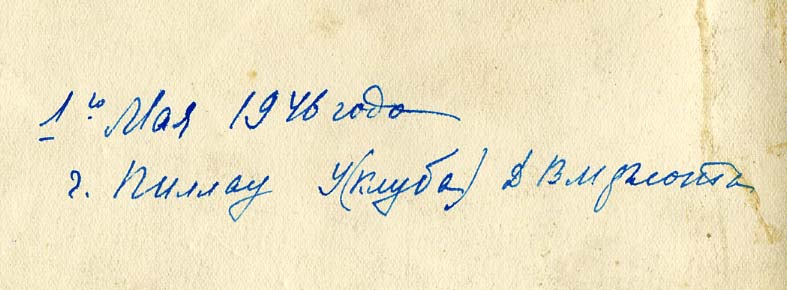 1го Мая 1946 года
г. Пиллау У(клуба) Д ВМФлота